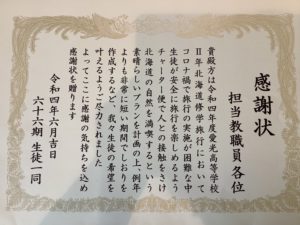 感謝状
担当教職員各位
貴殿方は令和四年度愛光高等学校
Ⅱ年北海道修学旅行において
コロナ禍で旅行の実施が困難な中
生徒が安全に旅行を楽しめるよう
チャーター便で人との接触をさけ
北海道の自然を満喫するという
素晴らしいプランを計画の上、例年
よりも非常に短い期間でしおりを
作成するなど、我々生徒の希望を
叶えるようご尽力されました
よってここに感謝の気持ちを込め
感謝状を贈ります
令和四年六月吉日
六十六期 生徒一同